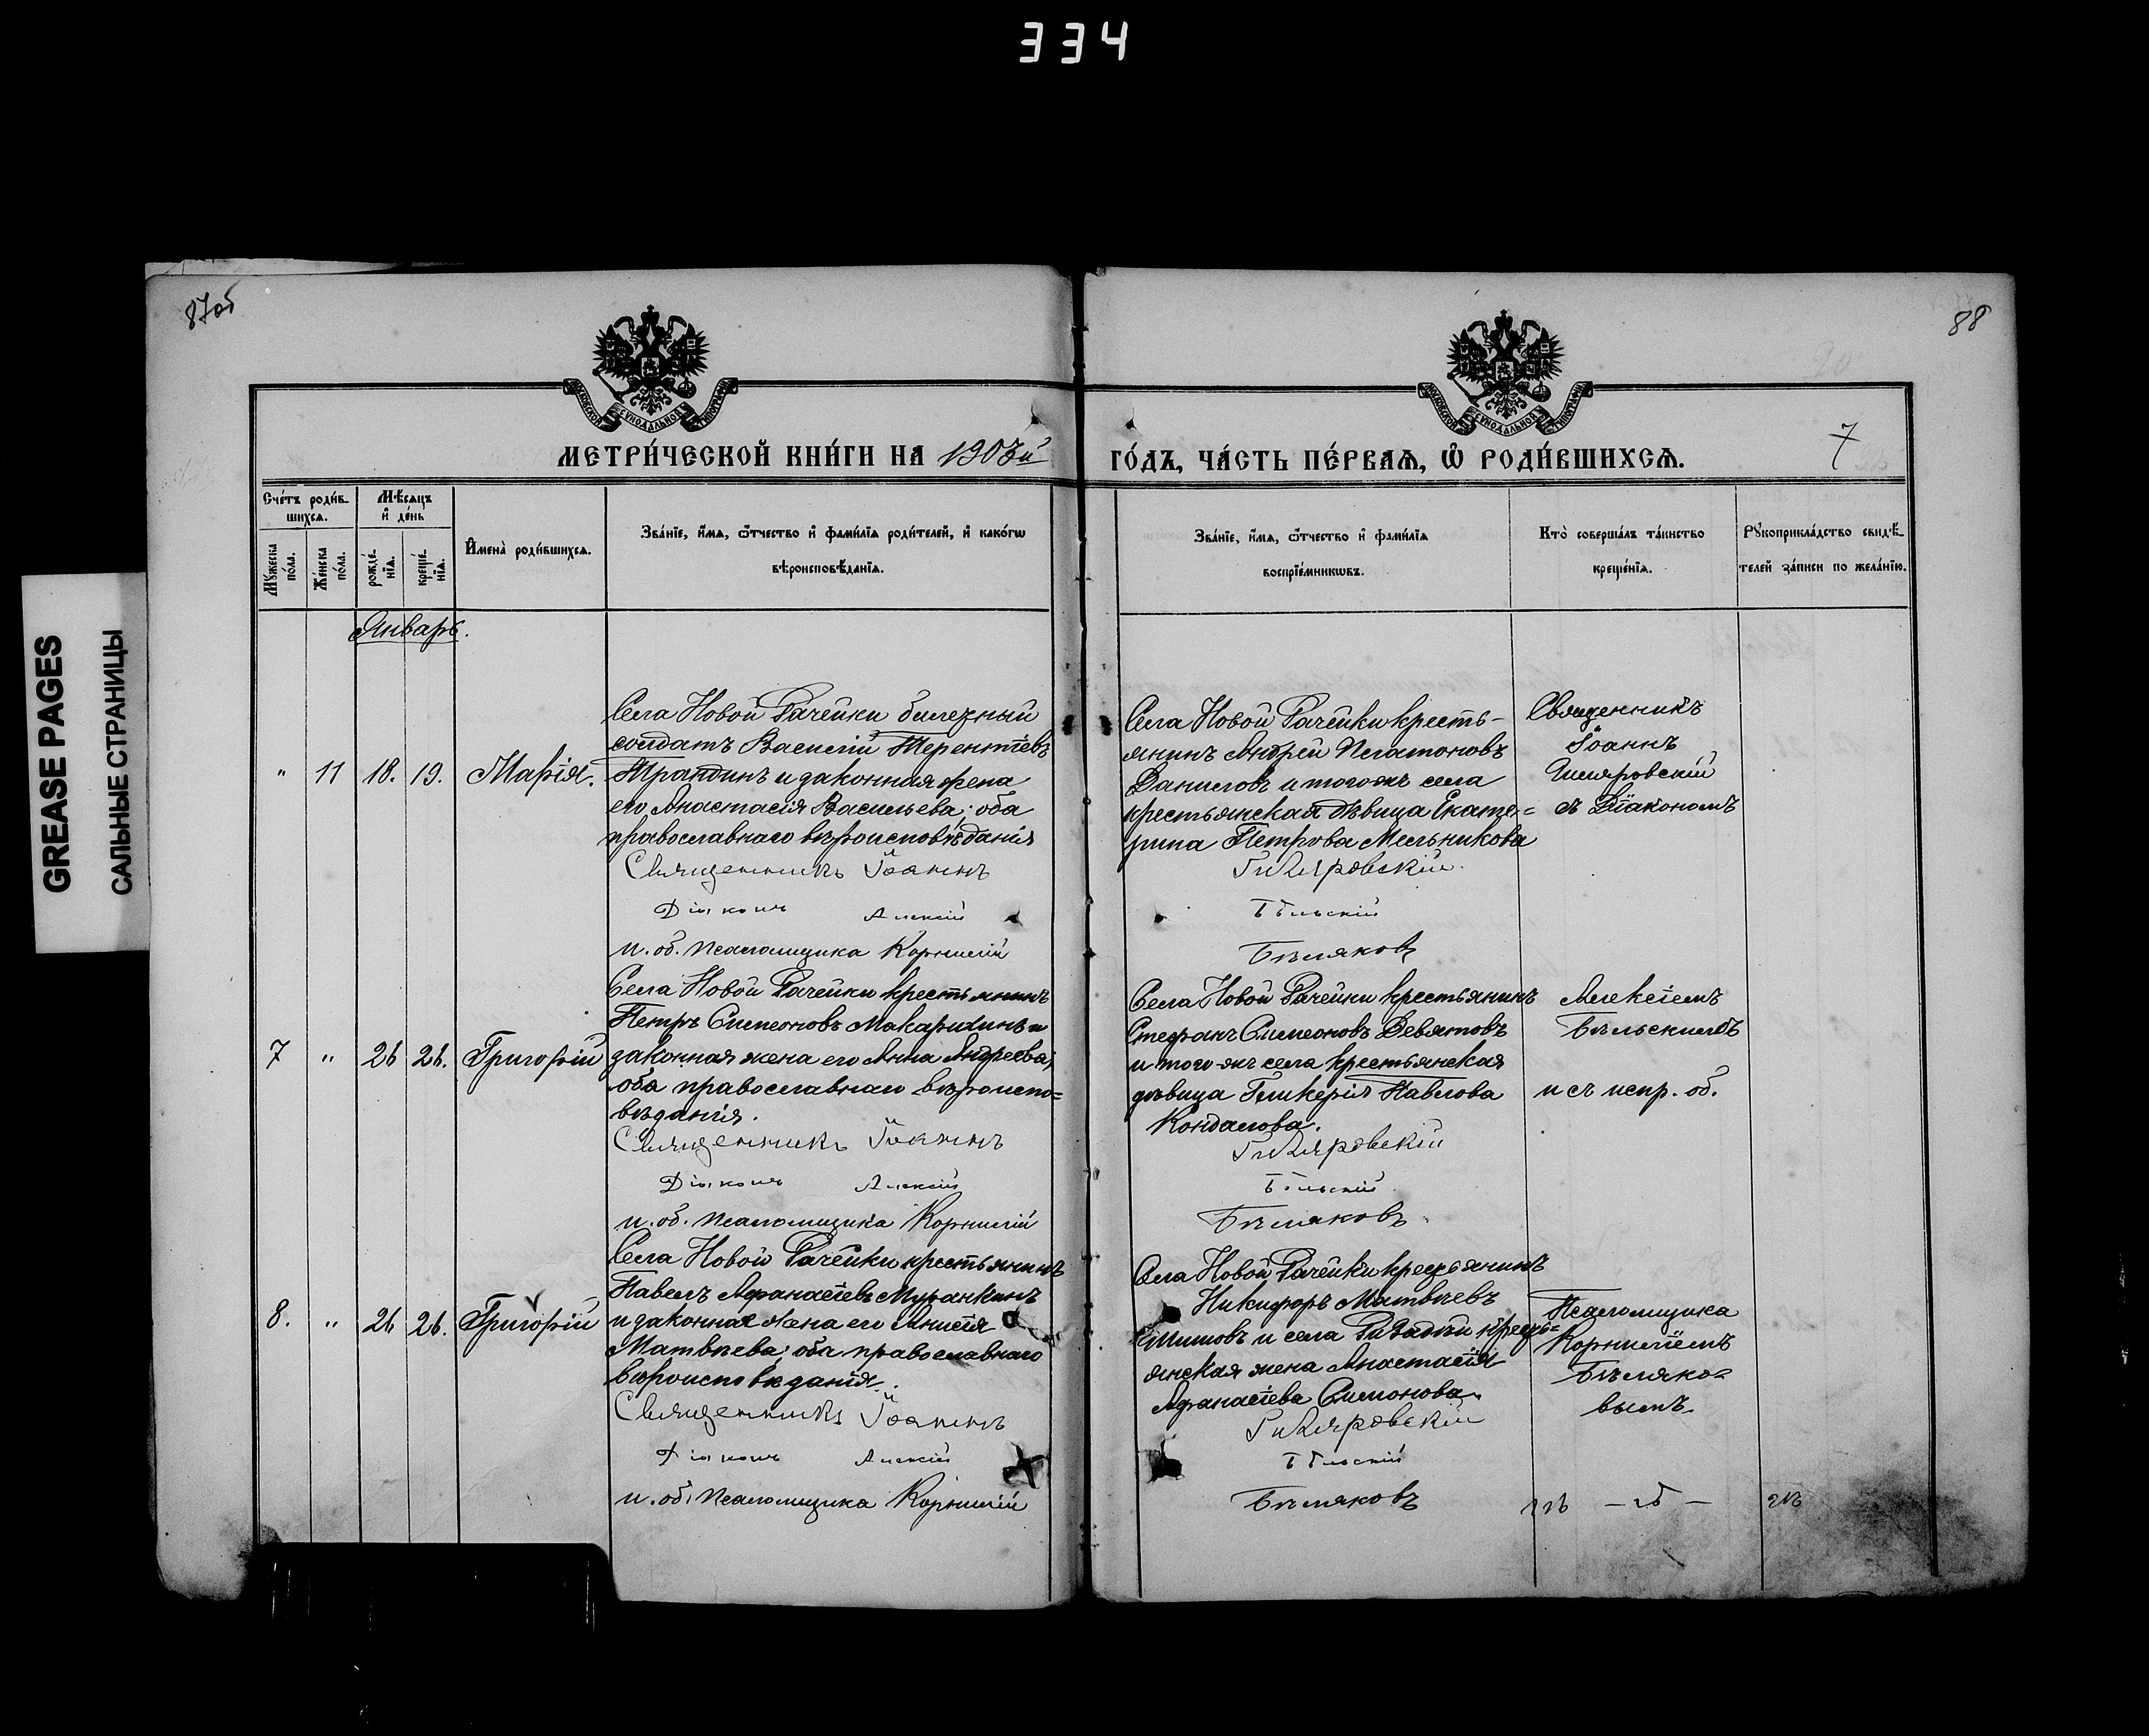 334
87об
88
МЕТРИ́ЧЕСКОЙ КНИ́ГИ НА 1903й
ГО́ДЪ, ЧА́СТЬ ПЕ́РВАѦ, Ѡ РОДИ́ВШИХСѦ.
7
GREASE PAGES
САЛЬНЫЕ СТРАНИЦЫ
Счéтъ роди́в-
шихсѧ.
Мѣ́сѧцъ
и де́нь
Мꙋ́жеска
по́ла.
Же́нска
по́ла.
рожде́-
нїѧ.
креще́-
нїѧ.
Имена̀ роди́вшихсѧ.
Зва́нїе, и́мѧ, ѻ́тчество и фами́лїѧ роди́телей, и како́гѡ
вѣроисповѣ́данїѧ.
Зва́нїе, и́мѧ, ѻ́тчество и фами́лїѧ
воспрїе́мникѡвъ.
Кто̀ соверша́лъ та́инство
креще́нїѧ.
Рꙋкоприкла́дство свидѣ́-
телей за́писи по жела́нїю.
Январь.
" 11 18. 19. Марія.
Села Новой Рачейки билетный
солдатъ Василій Терентіевъ
Трандинъ и законная жена
его Анастасія Васильева; оба
православнаго вѣроисповѣданія
Священникъ Іоаннъ
Діаконъ Алексій
и. об. псаломщика Корнилій
Села Новой Рачейки кресть-
янинъ Андрей Платоновъ
Даниловъ и того-жъ села
крестьянская дѣвица Екате-
рина Петрова Мельникова
Гиляровскій
Бѣльскій
Бѣляковъ
Священникъ
Іоаннъ
Гиляровскій
съ Діакономъ
7 " 26 26. Григорій
Села Новой Рачейки крестьянинъ
Петръ Симеоновъ Макарихинъ и
законная жена его Анна Андреева;
оба православнаго вѣроиспо-
вѣданія.
Священникъ Іоаннъ
Діаконъ Алексій
и. об. псаломщика Корнилій
Села Новой Рачейки крестьянинъ
Стефанъ Симеоновъ Девятовъ
и того-жъ села крестьянская
дѣвица Гликерія Павлова
Кондалова.
Гиляровскій
Бѣльскій
Бѣляковъ
Алексіемъ
Бѣльскимъ
и съ испр. об.
8. " 26 26. Григорій
Села Новой Рачейки крестьянинъ
Павелъ Афанасіевъ Муранкинъ
и законная жена его Анисія
Матвѣева; оба православнаго
вѣроисповѣданія.
Священникъ Іоаннъ
Діаконъ Алексій
и. об. псаломщика Корнилій
Села Новой Рачейки крестьянинъ
Никифоръ Матвѣевъ
и села кресть-
янская жена Анастасія
Афанасіева Симонова.
Гиляровскій
Бѣльскій
Бѣляковъ
Псаломщика
Корниліемъ
Бѣляко-
вымъ